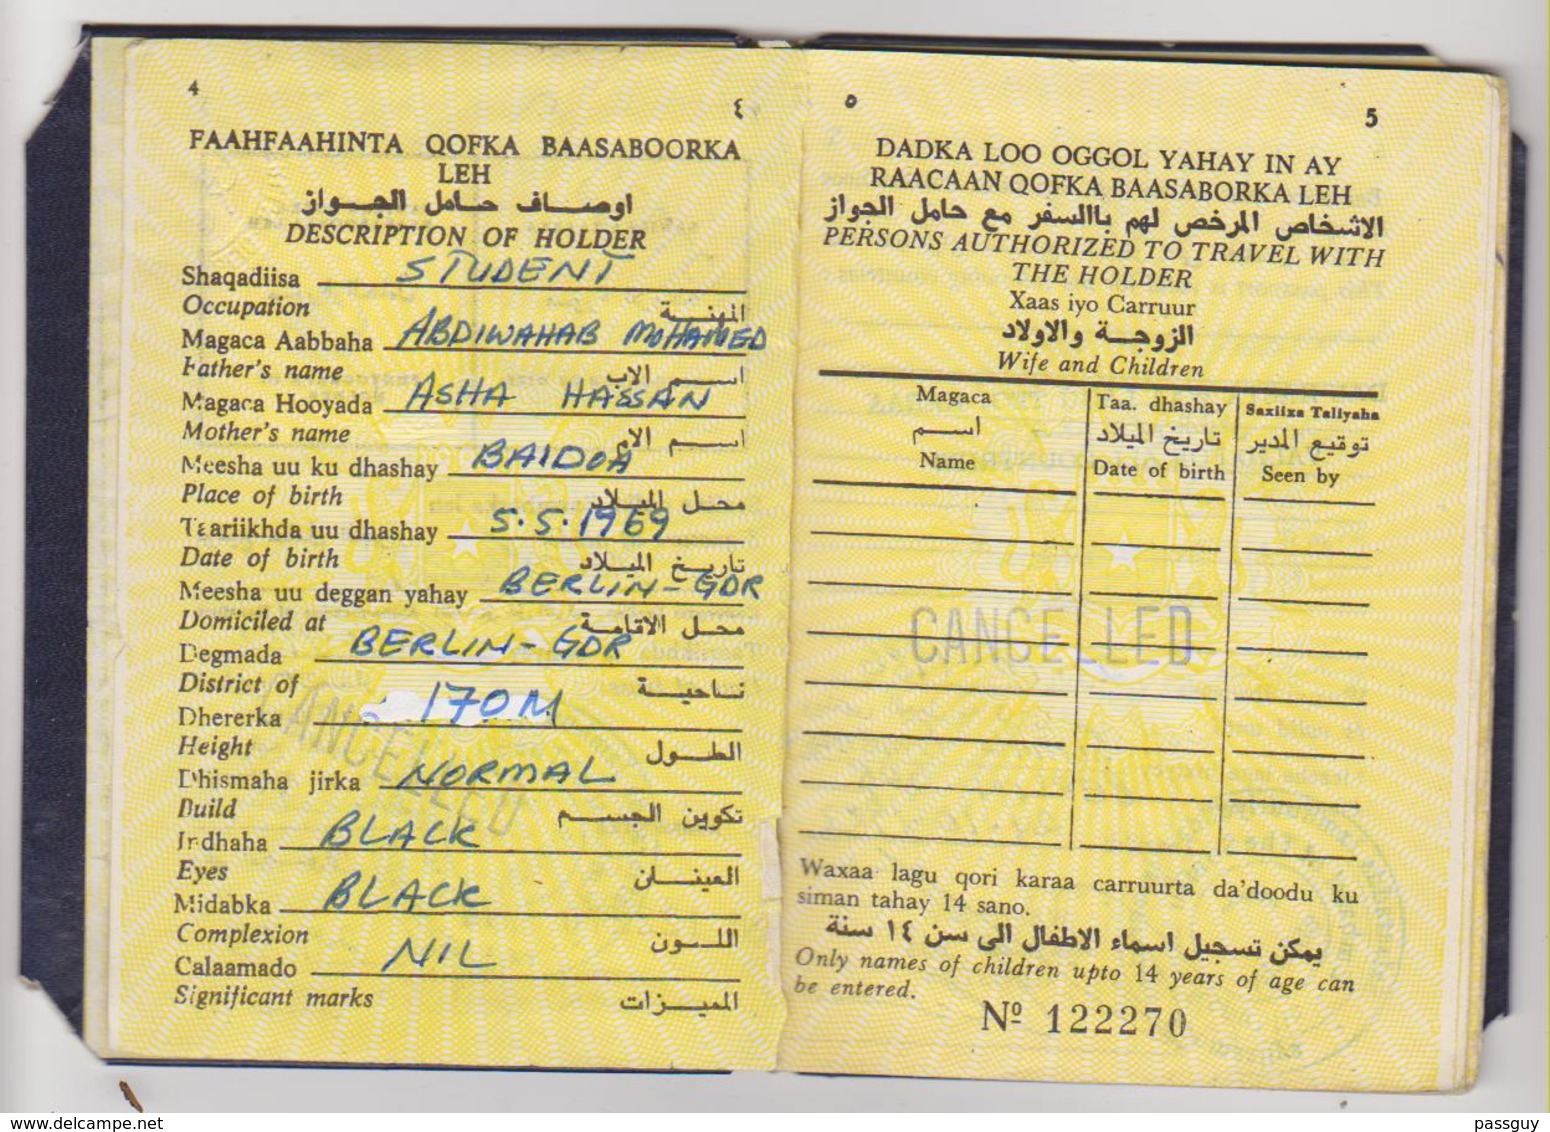 4
٤
FAAHFAAHINTA QOFKA BAASABOORKA
LEH
اوصاف حامل الجواز
DESCRIPTION OF HOLDER
Shaqadiisa STUDENT
Occupation المهنة
Magaca Aabbaha ABDIWAHAB MOHAMED
Father's name اسم الاب
Magaca Hooyada ASHA HASSAN
Mother's name اسم الام
Meesha uu ku dhashay BAIDOA
Place of birth محل الميلاد
Taariikhda uu dhashay 5.5.1969
Date of birth تاريخ الميلاد
Meesha uu deggan yahay BERLIN-GDR
Domiciled at محل الاقامة
Degmada BERLIN-GDR
District of ناحية
Dhererka 170M
Height الطول
Dhismaha jirka NORMAL
Build تكوين الجسم
Indhaha BLACK
Eyes العينان
Midabka BLACK
Complexion اللون
Calaamado NIL
Significant marks المميزات
CANCELLED
٥
5
DADKA LOO OGGOL YAHAY IN AY
RAACAAN QOFKA BAASABORKA LEH
الاشخاص المرخص لهم باالسفر مع حامل الجواز
PERSONS AUTHORIZED TO TRAVEL WITH
THE HOLDER
Xaas iyo Carruur
الزوجة والاولاد
Wife and Children
Magaca Taa. dhashay Saxiixa Taliyaha
اسم تاريخ الميلاد توقيع المدير
Name Date of birth Seen by
CANCELLED
Waxaa lagu qori karaa carruurta da'doodu ku
siman tahay 14 sano.
يمكن تسجيل اسماء الاطفال الى سن ١٤ سنة
Only names of children upto 14 years of age can
be entered.
Nº 122270
delcampe.net
passguy